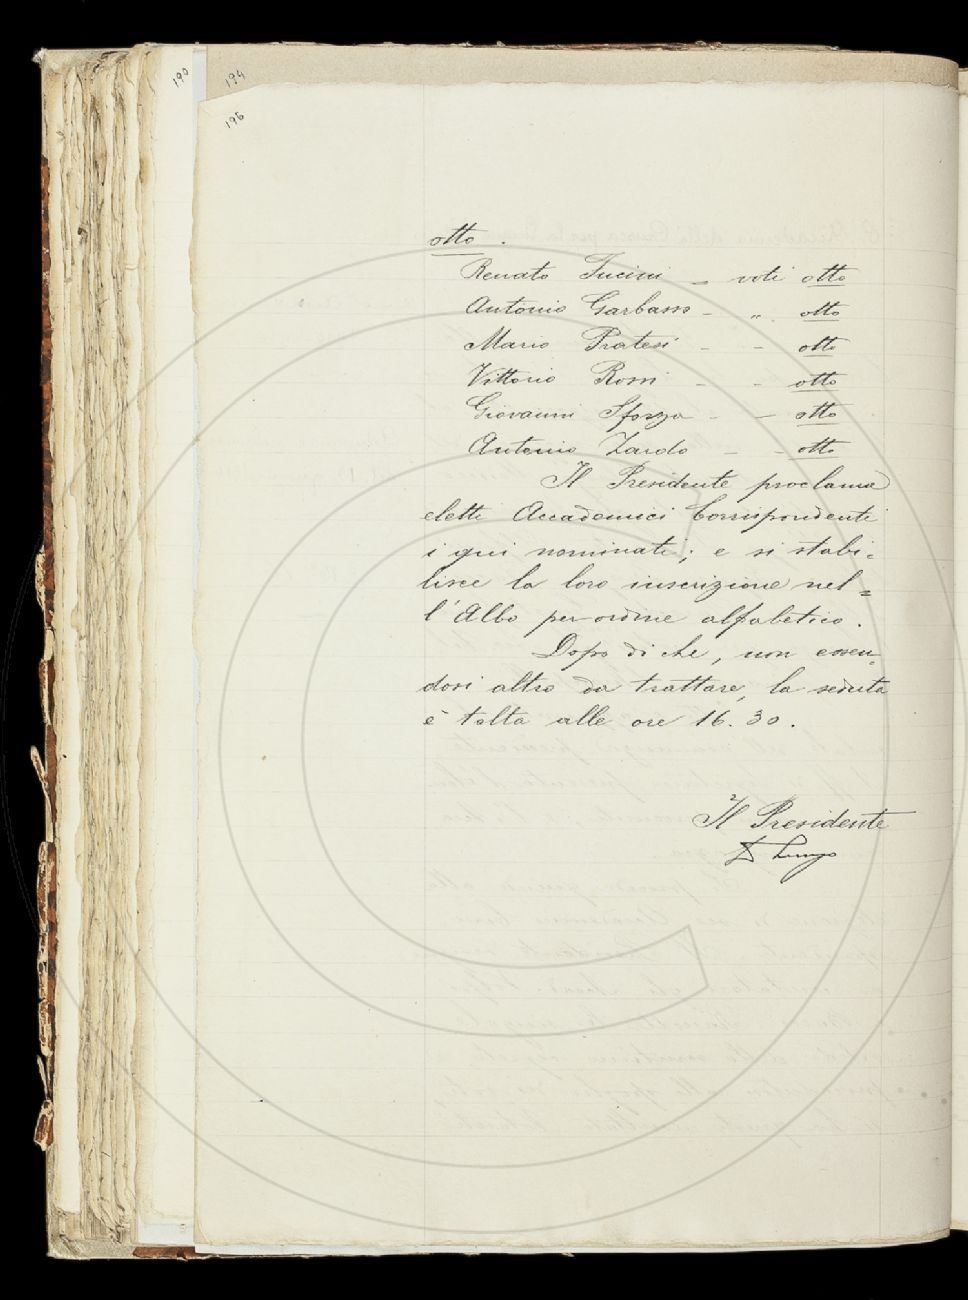 190
194
196
otto.
Renato Fucini - voti otto
Antonio Garbasso - " otto
Mario Pratesi - - otto
Vittorio Rossi - - otto
Giovanni Sforza - - otto
Antonio Zardo - - otto
Il Presidente proclama
eletti Accademici Corrispondenti
i qui nominati; e si stabi-
lisce la loro inscrizione nel-
l'Albo per ordine alfabetico.
Dopo di che, non essen-
dosi altro da trattare, la seduta
è tolta alle ore 16.30.
Il Presidente